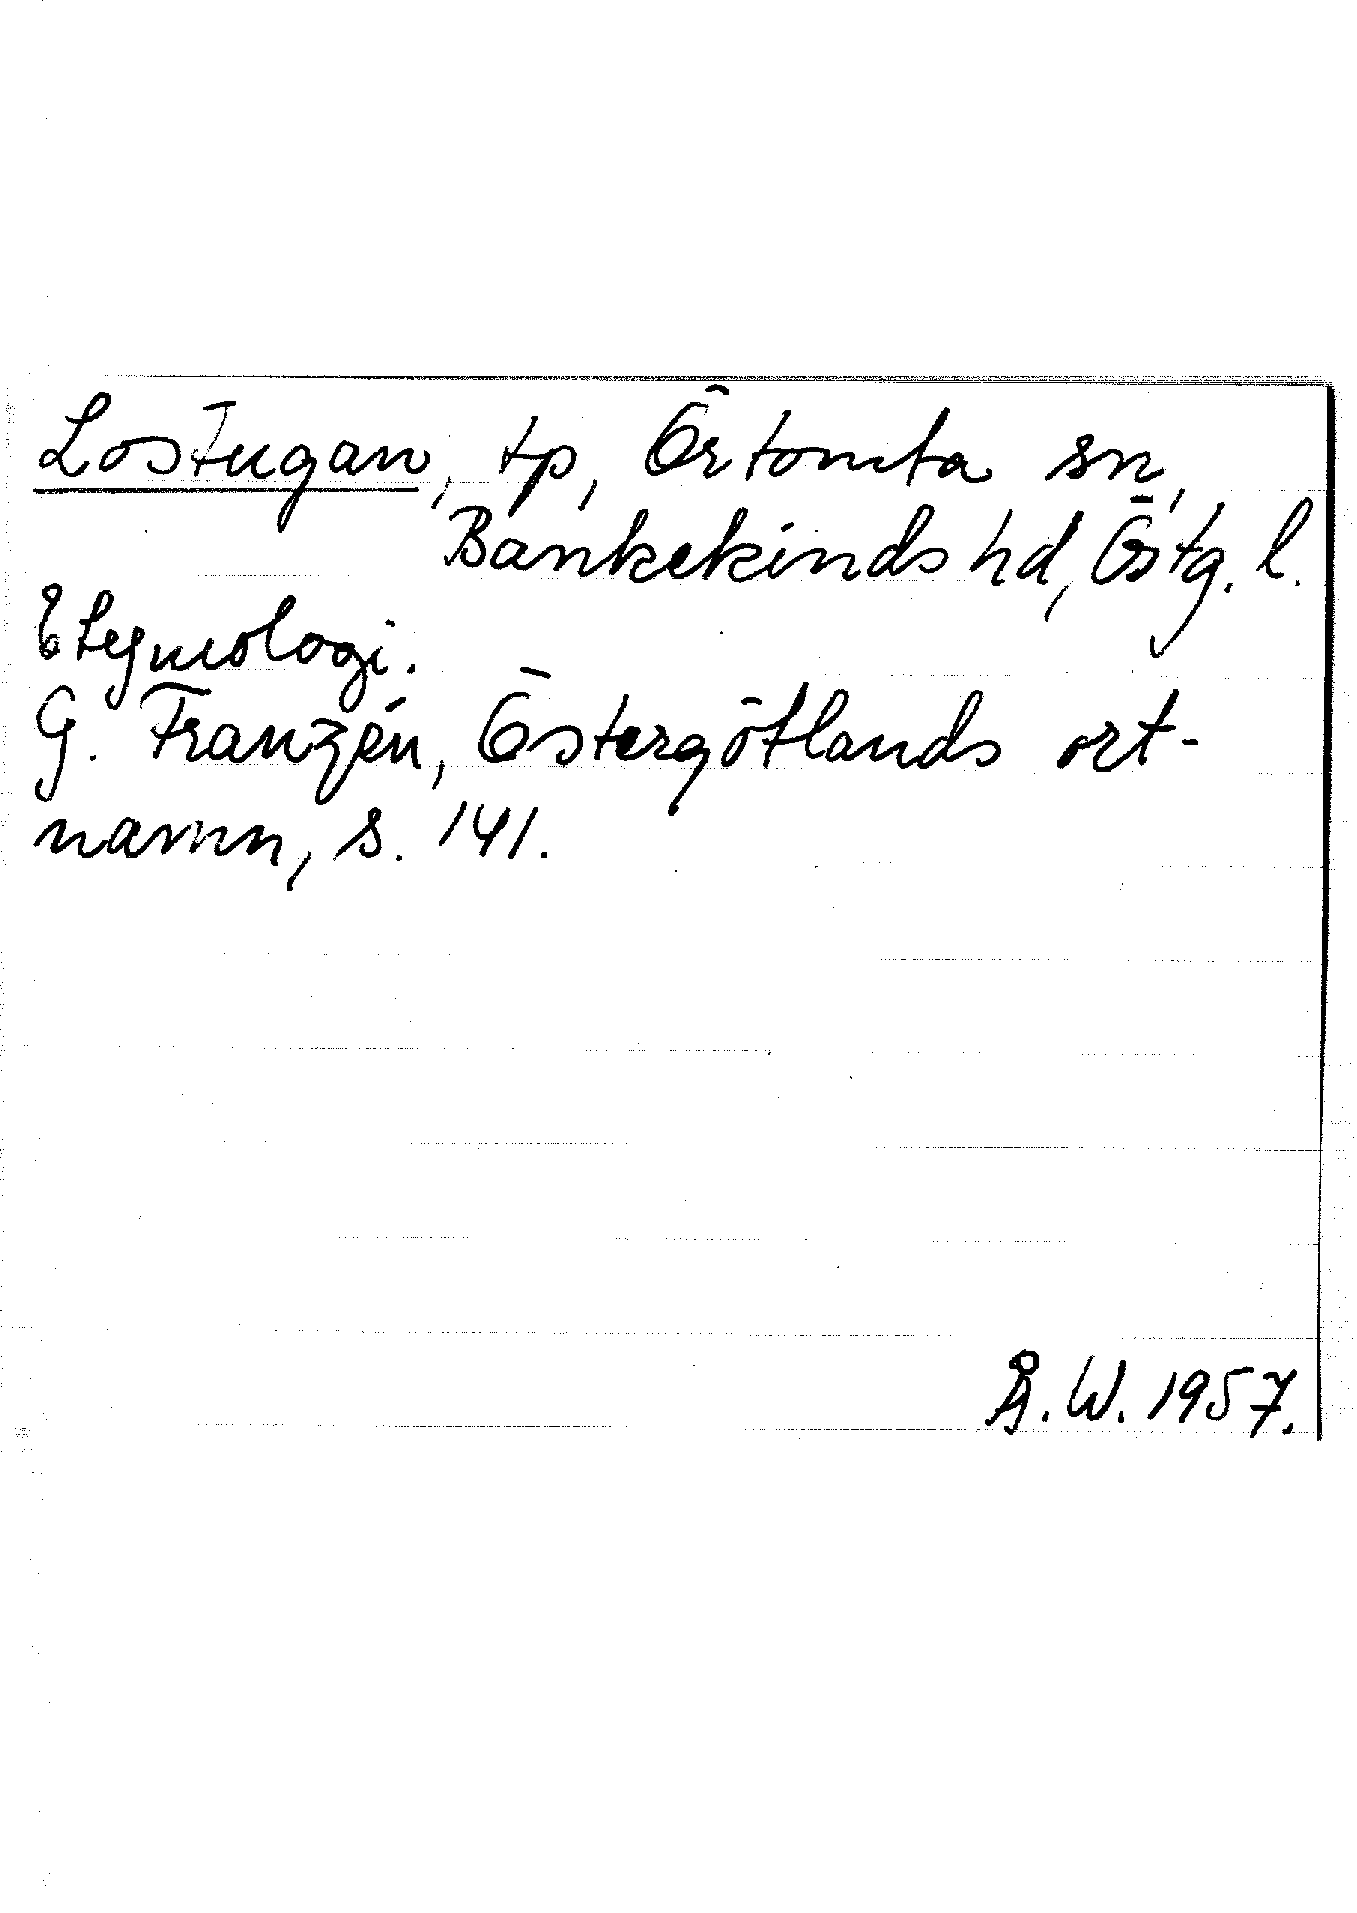 Lostugan, tp, Örtomta sn,
Bankekinds hd, Östg. l.
Etymologi.
G. Franzén, Östergötlands ort-
namn, s. 141.
Å. W. 1957.